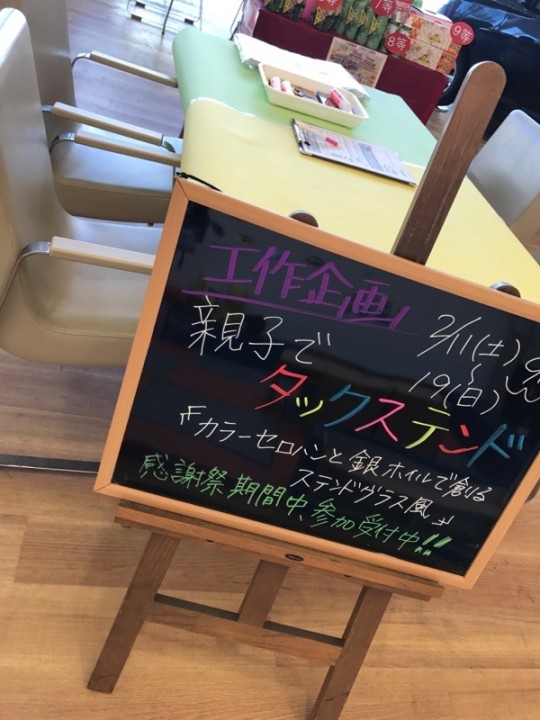 工作企画
親子で
2/11(土)
〜
19(日)
タックステンド
『カラーセロハンと銀ホイルで創る
ステンドグラス風』
感謝祭期間中、参加受付中!!
7等
8等
9等